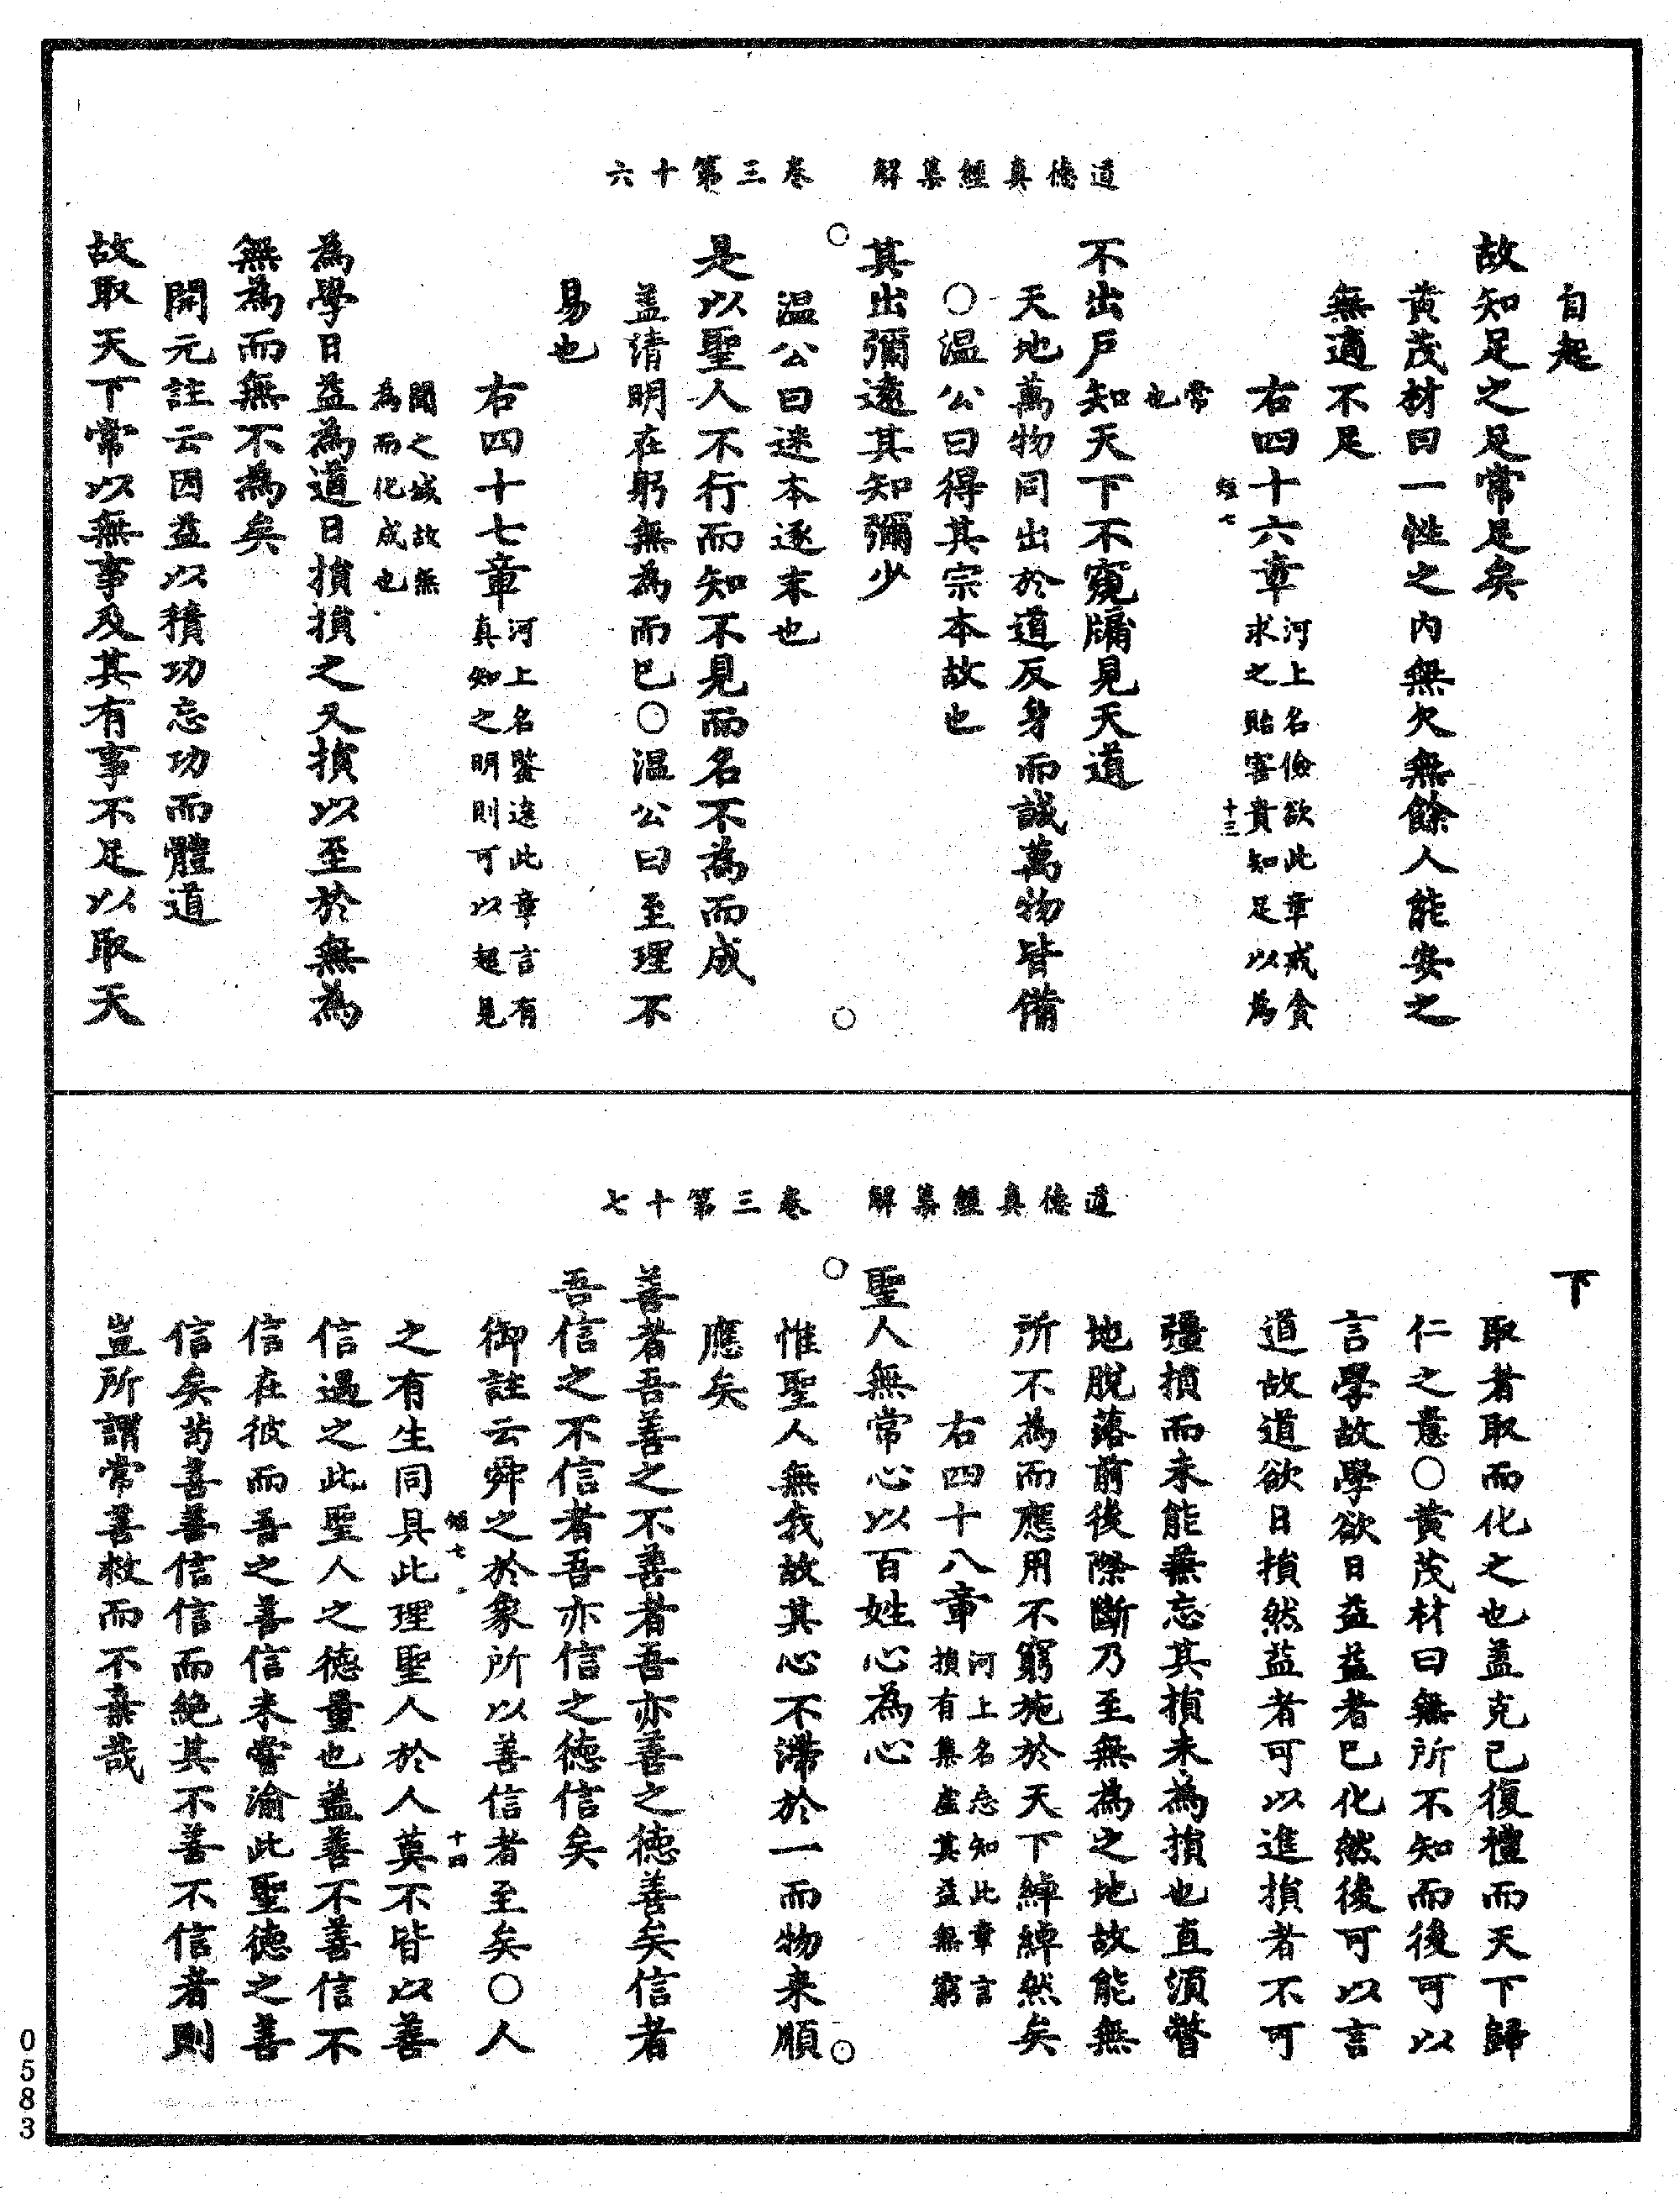 道德真經集解　卷三第十六
自起
故知足之足常足矣
黄茂材曰一性之内無欠無餘人能安之
無適不足
右四十六章河上名儉欲此章戒貪
求之貽害貴知足以為
短七　十三
常
也
不出戶知天下不窺牖見天道
天地萬物同出於道反身而誠萬物皆備
〇温公曰得其宗本故也
其出彌遠其知彌少
温公曰迷本逐末也
是以聖人不行而知不見而名不為而成
盖清明在躬無為而已〇温公曰至理不
易也
右四十七章河上名鑒遠此章言有
真知之明則可以超見
聞之域故無
為而化成也
為學日益為道日損損之又損以至於無為
無為而無不為矣
開元註云因益以積功忘功而體道
故取天下常以無事及其有事不足以取天
道德真經集解　卷三第十七
下
取者取而化之也盖克己復禮而天下歸
仁之意〇黄茂材曰無所不知而後可以
言學故學欲日益益者已化然後可以言
道故道欲日損然益者可以進損者不可
彊損而未能無忘其損未為損也直須瞥
地脫落前後際斷乃至無為之地故能無
所不為而應用不窮施於天下綽綽然矣
右四十八章河上名忘知此章言
損有集虛其益無窮
聖人無常心以百姓心為心
惟聖人無我故其心不滯於一而物来順
應矣
善者吾善之不善者吾亦善之德善矣信者
吾信之不信者吾亦信之德信矣
御註云舜之於象所以善信者至矣〇人
短七　十四
之有生同具此理聖人於人莫不皆以善
信遇之此聖人之德量也盖善不善信不
信在彼而吾之善信未嘗渝此聖德之善
信矣苟善善信信而絶其不善不信者則
豈所謂常善救而不棄哉
0583